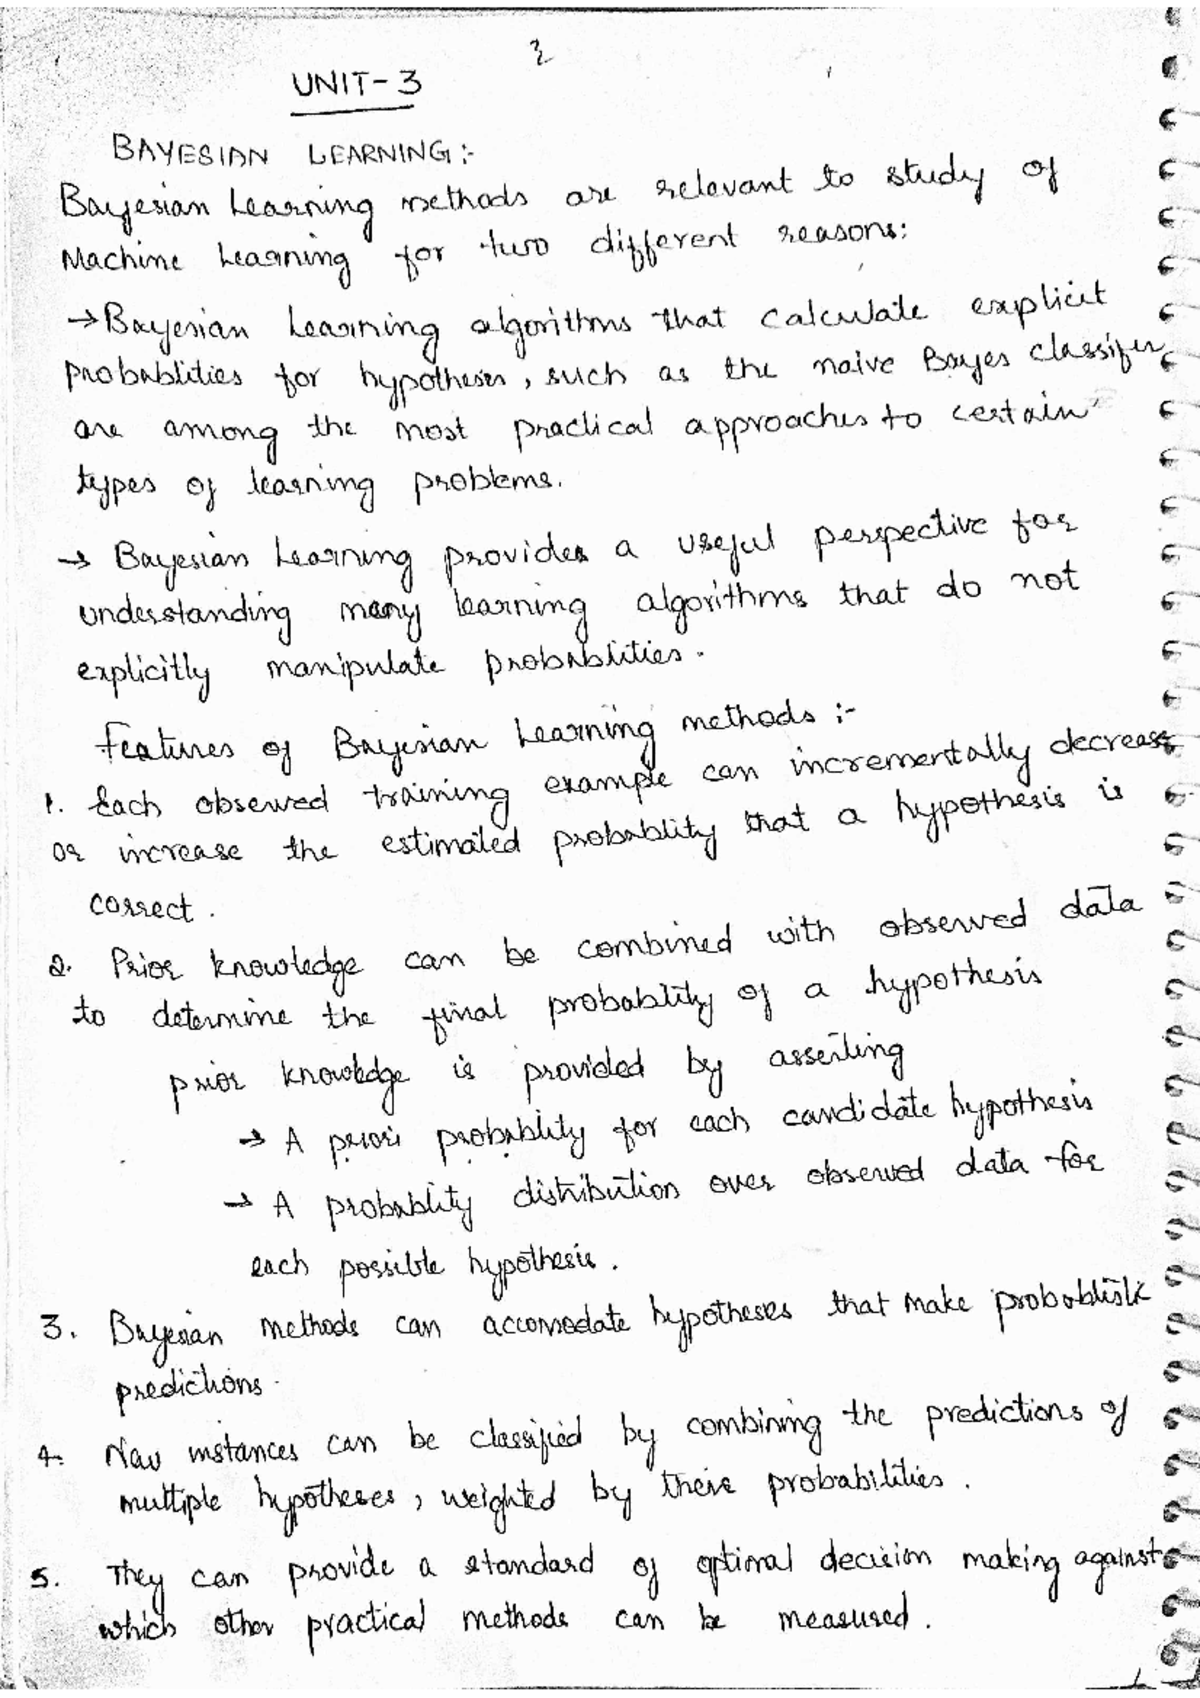 2
UNIT-3
BAYESIAN LEARNING:-
Bayesian Learning methods are relevant to study of
Machine Learning for two different reasons:
→Bayesian Learning algorithms that calculate explicit
probablities for hypotheses, such as the naive Bayes classifer
are among the most practical approaches to certain
types of learning problems.
→ Bayesian Learning provides a useful perspective for
understanding many learning algorithms that do not
explicitly manipulate probablities.
Features of Bayesian Learning methods :-
1. Each observed training example can incrementally decrease
or increase the estimated probablity that a hypothesis is
correct.
2. Prior knowledge can be combined with observed data
to determine the final probablity of a hypothesis
prior knowledge is provided by asserting
→ A priori probablity for each candidate hypothesis
→ A probablity distribution over observed data for
each possible hypothesis.
3. Bayesian methods can accomodate hypotheses that make probablistic
predictions.
4. New instances can be classified by combining the predictions of
multiple hypotheses, weighted by their probabilities.
5. They can provide a standard of optimal decision making against
which other practical methods can be measured.